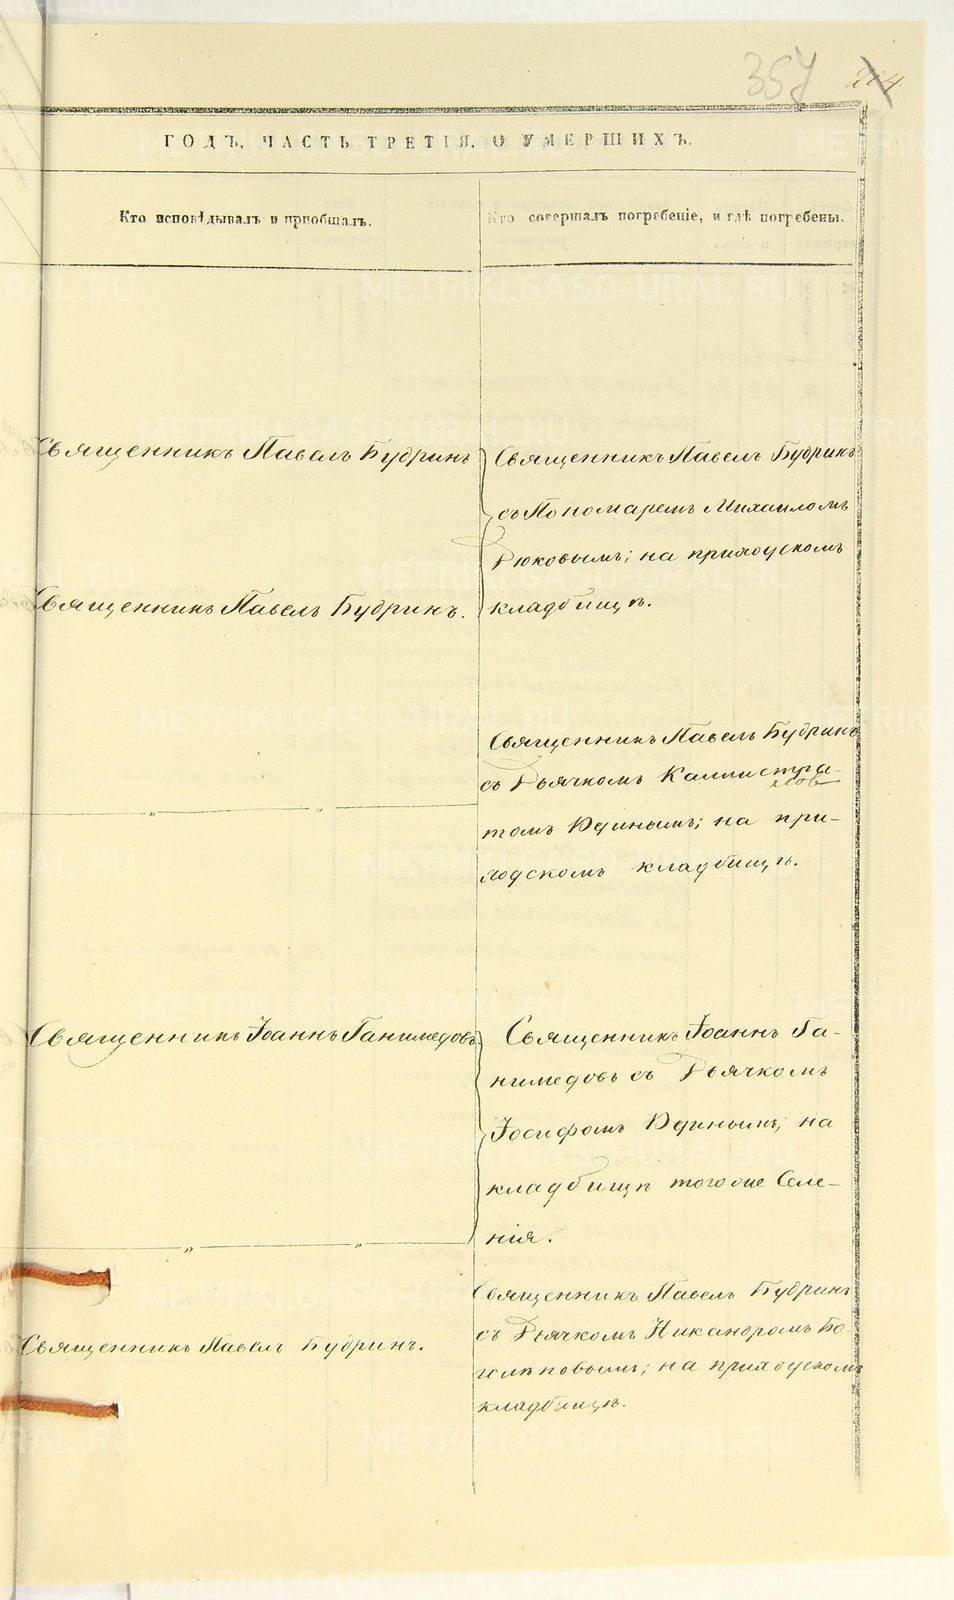 357
ГОДЪ, ЧАСТЬ ТРЕТІЯ, О УМЕРШИХЪ.
Кто исповѣдывалъ и пріобщалъ.
Кто совершалъ погребеніе, и гдѣ погребены.
Священникъ Павелъ Будринъ
Священникъ Павелъ Будринъ.
„ „
Священникъ Іоаннъ Ганимедовъ
„ „
Священникъ Павелъ Будринъ.
Священникъ Павелъ Будринъ
съ Пономаремъ Михаиломъ
Рюковымъ; на приходскомъ
кладбищѣ.
Священникъ Павелъ Будринъ
съ Дьячкомъ Каллистра-
томъ на при-
ходскомъ кладбищѣ.
Священникъ Іоаннъ Га-
нимедовъ съ Дьячкомъ
Іосифомъ на
кладбищѣ того же Селе-
нія.
Священникъ Павелъ Будринъ
съ Дьячкомъ Никандромъ Бо-
голѣповымъ; на приходскомъ
кладбищѣ.
METRIKI.GASO-URAL.RU